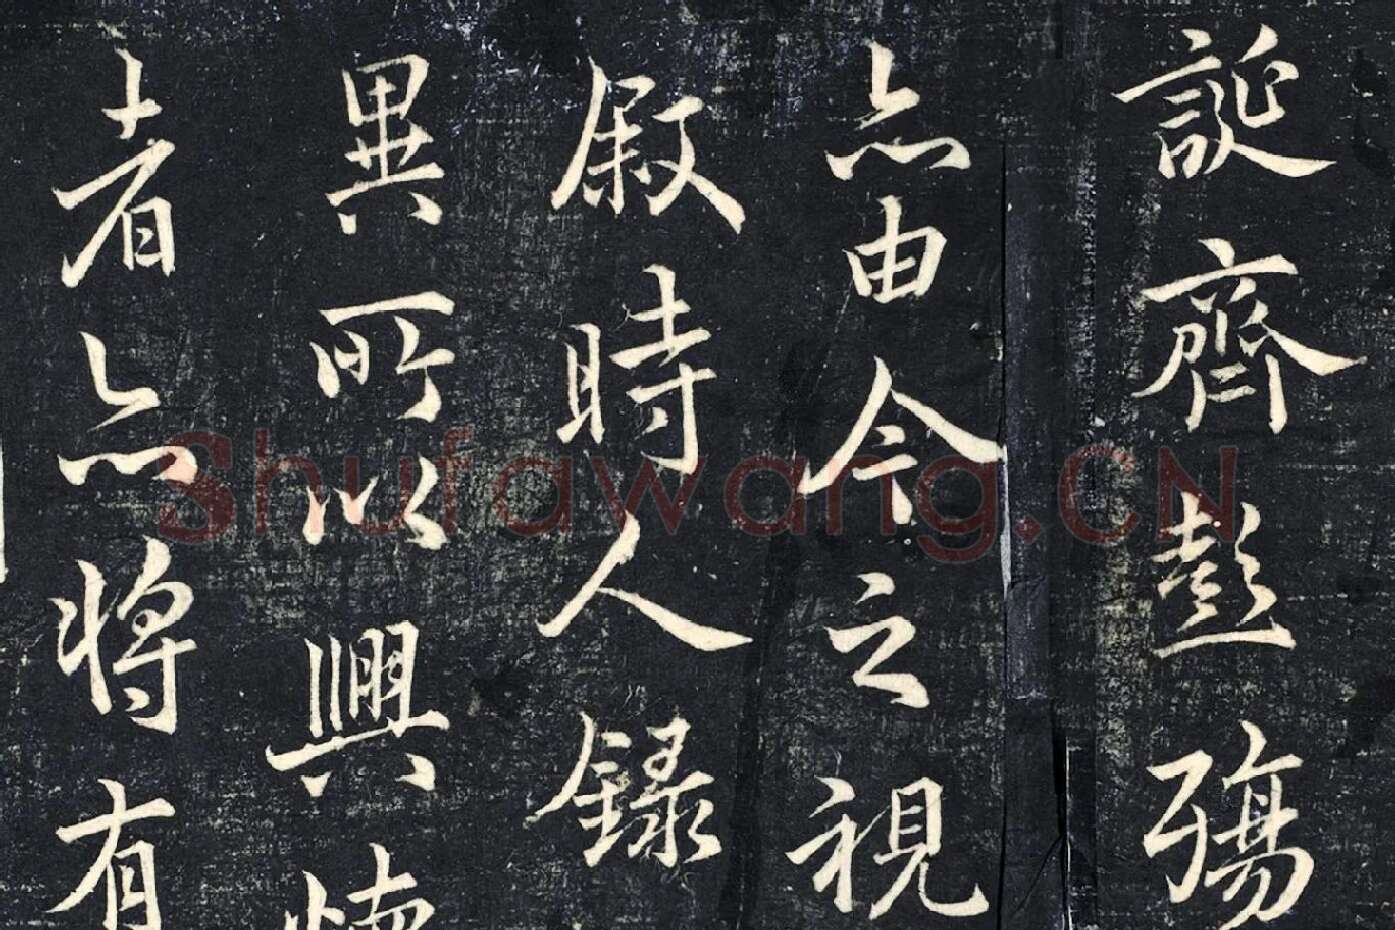 誕齊彭殤
亦由今之視
敘時人錄
異所以興懷
者亦將有
Shufawang.CN